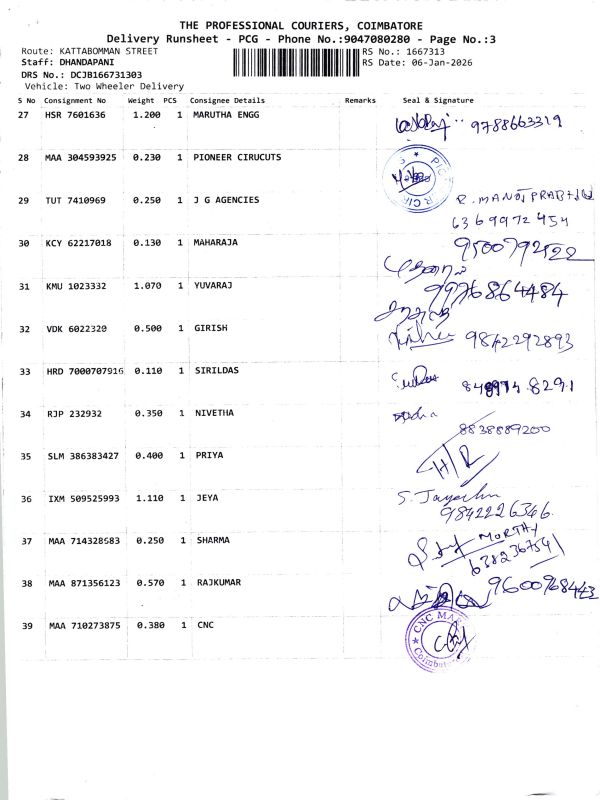 THE PROFESSIONAL COURIERS, COIMBATORE
Delivery Runsheet - PCG - Phone No.:9047080280 - Page No.:3
Route: KATTABOMMAN STREET RS No.: 1667313
Staff: DHANDAPANI RS Date: 06-Jan-2026
DRS No.: DCJB166731303
Vehicle: Two Wheeler Delivery
S No Consignment No Weight PCS Consignee Details Remarks Seal & Signature
27 HSR 7601636 1.200 1 MARUTHA ENGG 9788663319
28 MAA 304593925 0.230 1 PIONEER CIRUCUTS
29 TUT 7410969 0.250 1 J G AGENCIES R. MANOJ PRABHU
6369972454
30 KCY 62217018 0.130 1 MAHARAJA
31 KMU 1023332 1.070 1 YUVARAJ 9976864484
32 VDK 6022320 0.500 1 GIRISH 9842292893
33 HRD 7000707916 0.110 1 SIRILDAS
34 RJP 232932 0.350 1 NIVETHA
8838889200
35 SLM 386383427 0.400 1 PRIYA H/R
36 IXM 509525993 1.110 1 JEYA
9842226346
37 MAA 714328583 0.250 1 SHARMA MORTHY
38 MAA 871356123 0.570 1 RAJKUMAR
39 MAA 710273875 0.380 1 CNC CNC